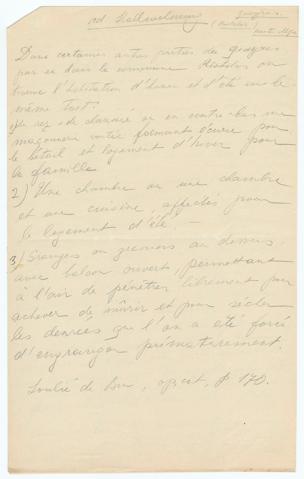 Dans certaines autres parties du queyras
par ex dans la commune on
trouve l'habitation d'hiver et d'été sous le
même toit.
1) Le rez de chaussé ou en contre-bas une
maçonnerie voûtée formant écurie pour
le bétail et logement d'hiver pour
la famille.
2) Une chambre ou une chambre
et une cuisine, affectés pour
le logement d'été. —
3) Granges ou greniers au dessus,
avec balcon ouvert, permettant
à l'air de pénétrer librement pour
achever de mûrir et pour sécher
les denrées que l'on a été forcé
d'engranger prématurément.
op. cit, p 170.